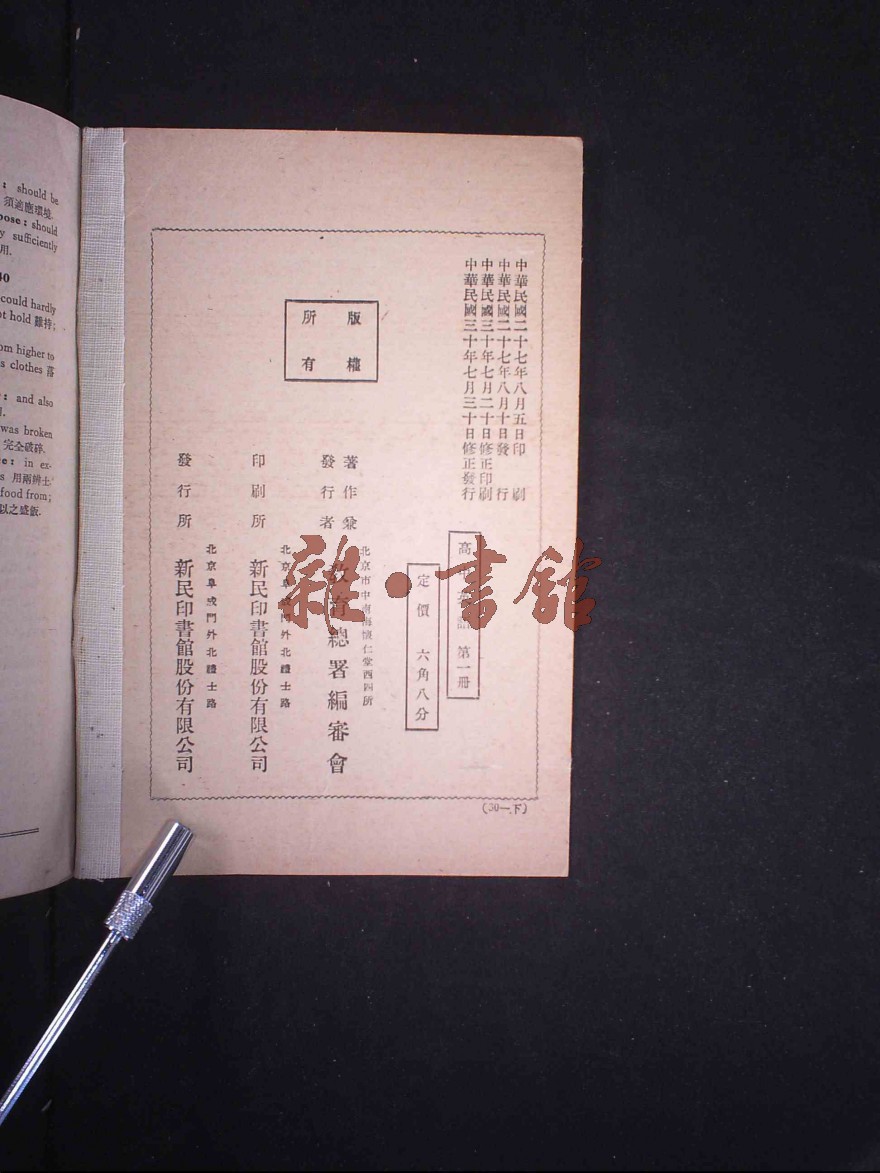 : should be
須適應環境.
pose: should
y sufficiently
用.
40
could hardly
ot hold 難持;
om higher to
s clothes 落
: and also
was broken
完全破碎.
ce: in ex-
s 用兩辨土
food from;
以之盛飯.
中華民國二十七年八月五日印刷
中華民國二十七年八月十日發行
中華民國三十年七月二十日修正印刷
中華民國三十年七月三十日修正發行
高中英語 第一冊
定價 六角八分
版權
所有
著作兼
發行者
北京市中南海懷仁堂西四所
教育總署編審會
印刷所
北京阜成門外北禮士路
新民印書館股份有限公司
發行所
北京阜成門外北禮士路
新民印書館股份有限公司
(30—下)
雜·書館